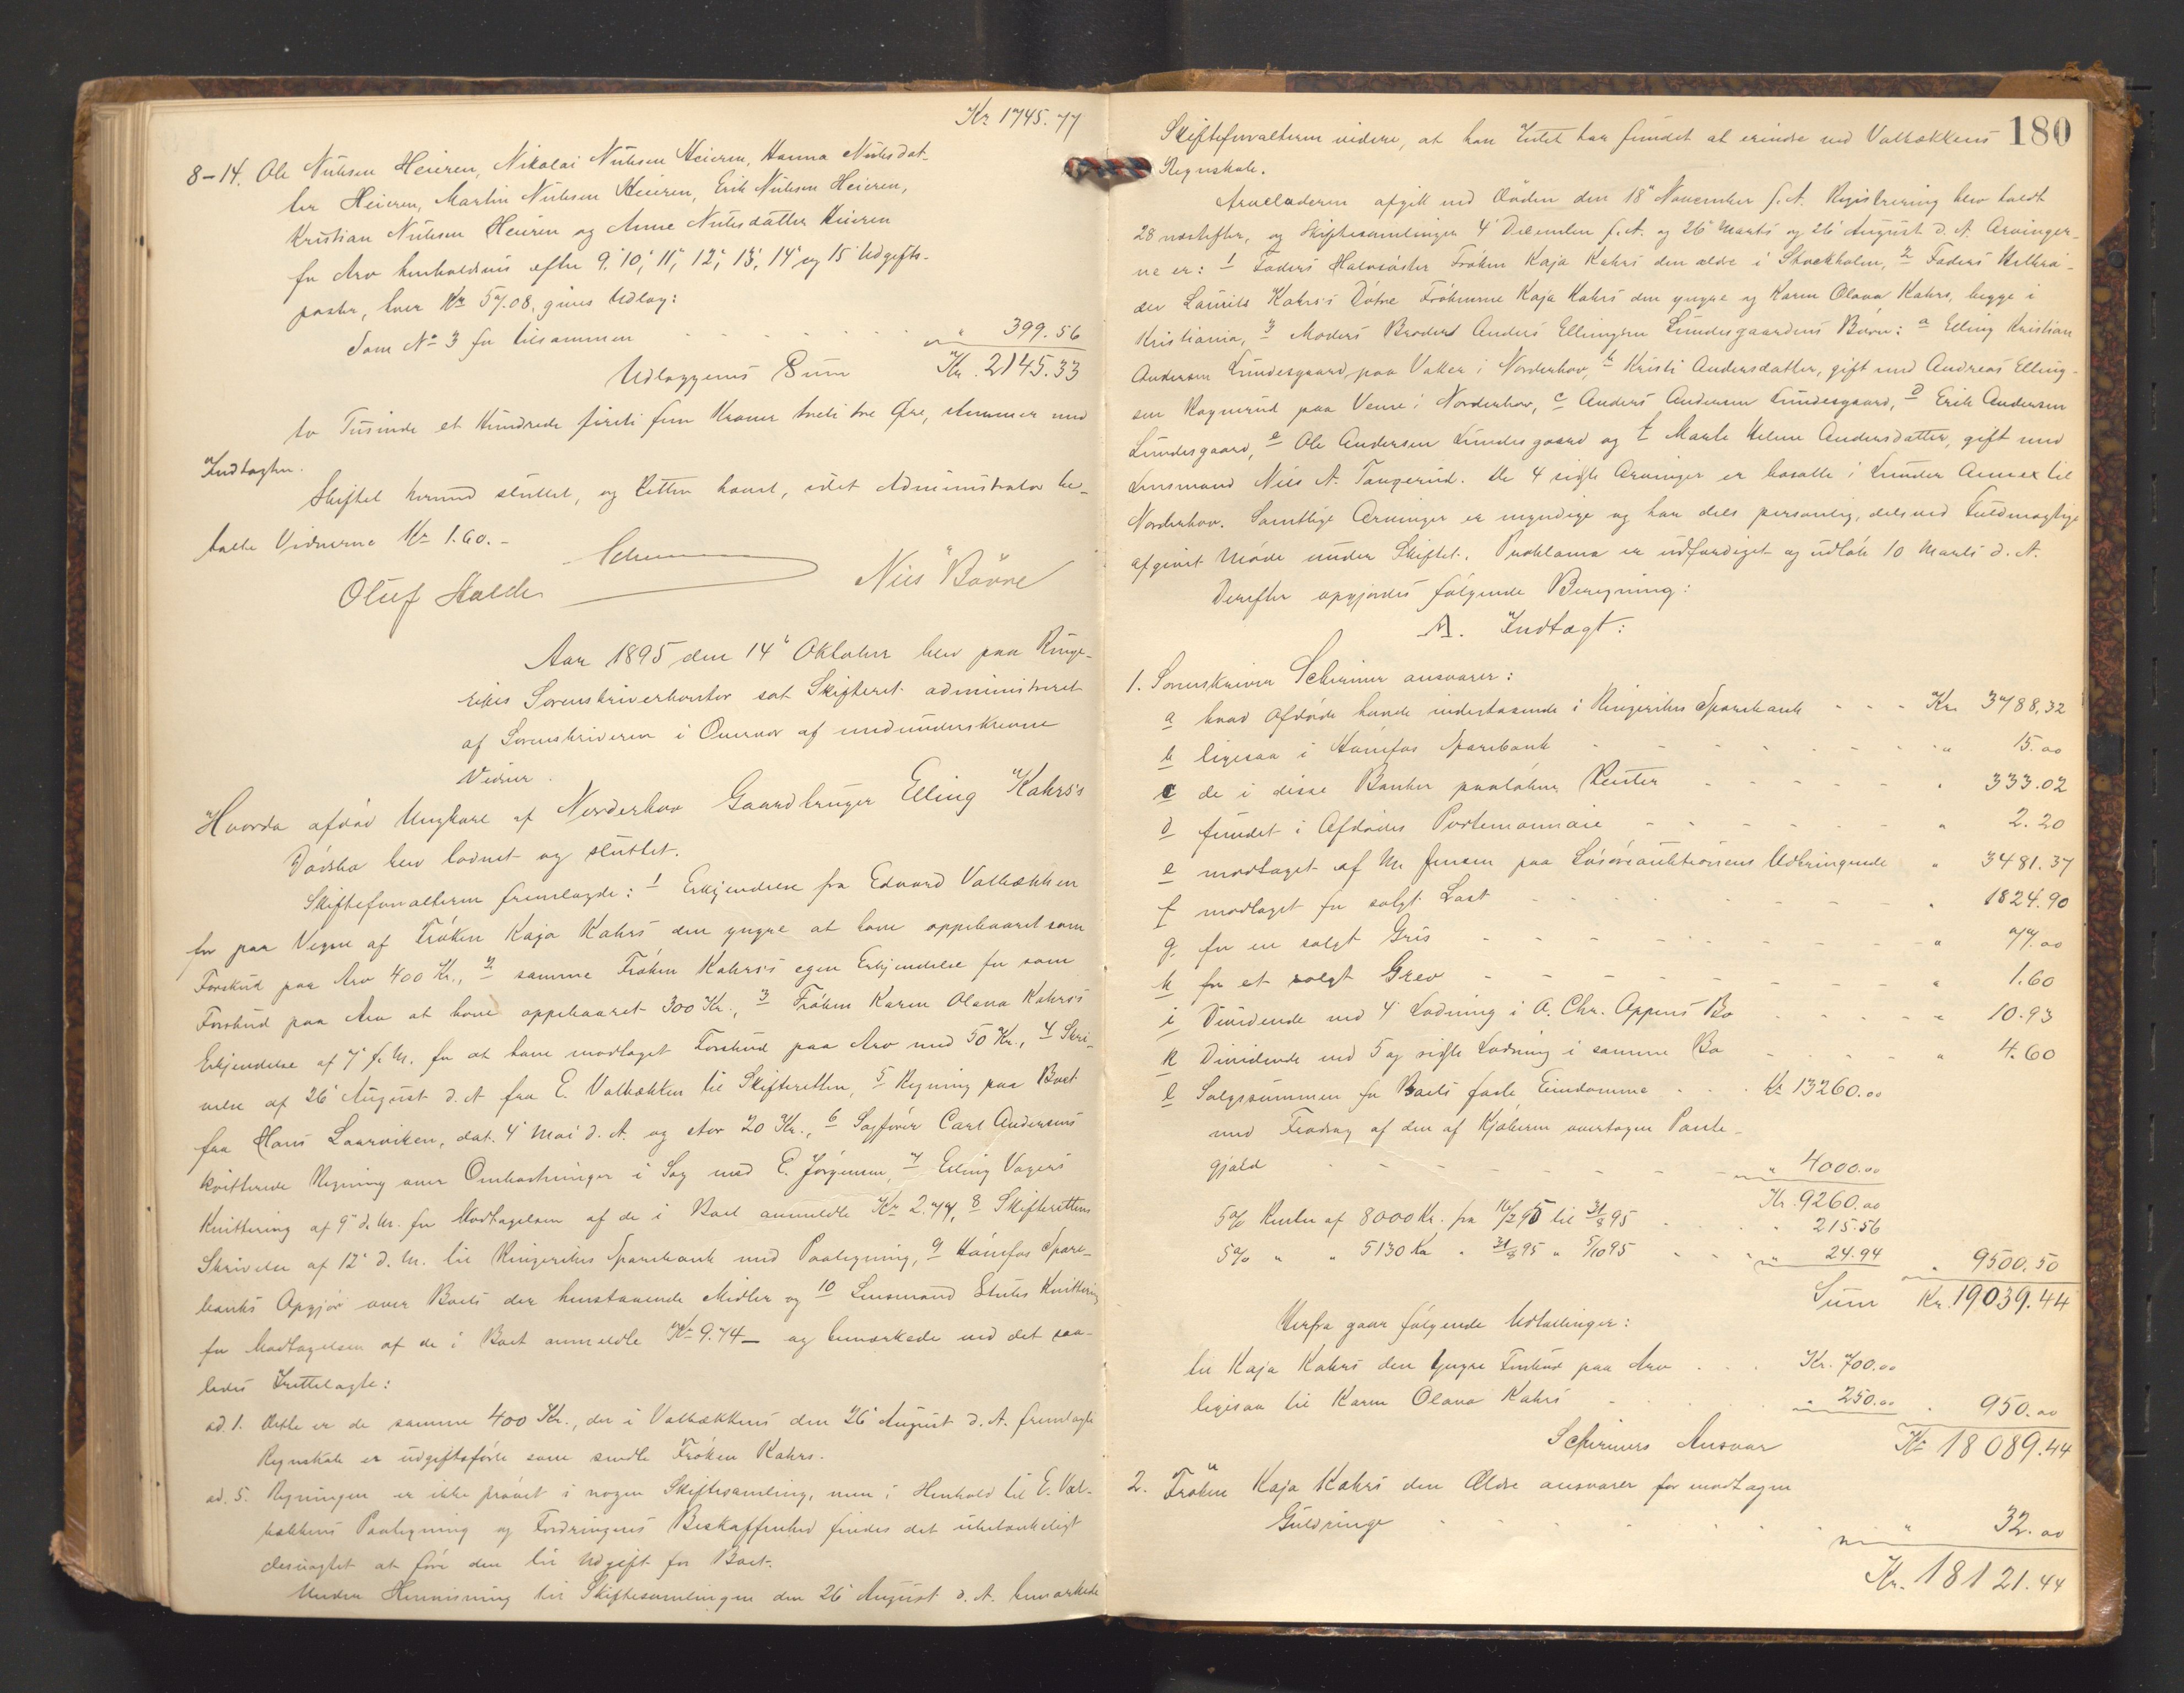 Kr 1745.77
8-14. Ole Nilsen Heieren, Nikolai Nilsen Heieren, Hanna Nilsdat-
ter Heieren, Martin Nilsen Heieren, Erik Nilsen Heieren,
Kristian Nilsen Heieren og Anne Nilsdatter Heieren
for Arv henholdsvis efter 9, 10, 11, 12, 13, 14 og 15 Udgifts-
poster, hver Kr 57.08. gives Udlæg:
Som No 3 for tilsammen " 399.56
Udlæggenes Sum Kr. 2145.33
to Tusinde et Hundrede firti fem Kroner treti tre Øre, stemmer med
Indtægten.
Skiftet hermed sluttet, og Retten hævet, idet Administrator be-
talte Vidnerne Kr 1.60.-
Schirmer
Oluf Halde Nils Bövre
Aar 1895 den 14de Oktober blev paa Ringe-
rikes Sorenskriverkontor sat Skifteret administreret
af Sorenskriveren i Overvær af medunderskrevne
Vidner.
Hvorda afdød Ungkarl af Norderhov Gaardbruger Elling Kahrs's
Dödsbo blev lodnet og sluttet.
Skifteforvalteren fremlagde: 1 Erkjendelse fra Edvard Valbækken
for paa Vegne af Fröken Kaja Kahrs den yngre at have oppebaaret som
Forskud paa Arv 400 Kr., 2 samme Fröken Kahrs's egen Erkjendelse for som
Forskud paa Arv at have oppebaaret 300 Kr., 3 Fröken Karen Olava Kahrs's
Erkjendelse af 7 f. M. for at have modtaget Forskud paa Arv med 50 Kr., 4 Skri-
velse af 26 August d. A. fra E. Valbækken til Skifteretten, 5 Regning paa Boet
fra Hans Laarviken, dat. 4 Mai d. A. og stor 20 Kr., 6 Sagförer Carl Andersens
kvitterede Regning over Omkostninger i Sag mod E. Jörgensen, 7 Elling Vagers
Kvittering af 9 d. M. for Modtagelsen af de i Boet anmeldte Kr 2.77, 8 Skifterettens
Skrivelse af 12 d. M. til Ringerikes Sparebank med Paategning, 9 Hönefos Spare-
banks Opgjör over Boets der henstaaende Midler og 10 Lensmand Stubs Kvittering
for Modtagelsen af de i Boet anmeldte Kr 9.74 - og bemærkede ved det saa-
ledes Fremlagte:
ad. 1. Dette er de samme 400 Kr., der i Valbækkens den 26 August d. A. fremlagte
Regnskab er udgiftsförte som sendte Fröken Kahrs.
ad. 5. Regningen er ikke prövet i nogen Skiftesamling, men i Henhold til E. Val-
bækkens Paategning og Fordringens Beskaffenhed findes det ubetænkeligt
desuagtet at före den til Udgift for Boet.
Under Henvisning til Skiftesamlingen den 26 August d. A. bemærkede
180
Skifteforvalteren videre, at han Intet har fundet at erindre ved Valbækkens
Regnskab.
Arveladeren afgik ved Döden den 18 November f. A. Registrering blev holdt
28 næstefter, og Skiftesamlinger 4 December f. A. og 26 Marts og 26 August d. A. Arvinger-
ne er: 1 Faders Halvsöster Fröken Kaja Kahrs den ældre i Stockholm, 2 Faders Halbrö-
der Laurits Kahrs's Dötre Frökenerne Kaja Kahrs den yngre og Karen Olava Kahrs, begge i
Kristiania, 3 Moders Broder Anders Ellingsen Lundesgaardens Börn: a Elling Kristian
Andersen Lundesgaard paa Vaker i Norderhov, b Kristi Andersdatter, gift med Andreas Elling-
sen Rognerud paa Veme i Norderhov, c Anders Andersen Lundesgaard, d Erik Andersen
Lundesgaard, e Ole Andersen Lundesgaard og f Marte Helene Andersdatter, gift med
Lensmand Nils A. Tangerud. De 4 sidste Arvinger er bosatte i Lunder Annex til
Norderhov. Samtlige Arvinger er myndige og har dels personlig, dels ved Fuldmægtige
afgivet Möde under Skiftet. Proklama er udfærdiget og udlöb 10 Marts d. A.
Derefter opgjordes fölgende Beregning:
A. Indtægt:
1. Sorenskriver Schirmer ansvarer:
a hvad Afdöde havde indestaaende i Ringerikes Sparebank - - - Kr. 3788.32
b ligesaa i Hönefos Sparebank " 15.00
c de i disse Banker paalöbne Renter " 333.02
d fundet i Afdödes Portemonnaie " 2.20
e modtaget af Mr Jensen paa Lösöreauktionens Udbringende " 3481.37
f modtaget for solgt Last " 1824.90
g. for en solgt Gris " 77.00
h for et solgt Grev " 1.60
i Dividende ved 4 Lodning i A. Chr. Appens Bo " 10.93
k Dividende ved 5 og sidste Lodning i samme Bo " 4.60
l Salgssummen for Boets faste Eiendomme Kr 13260.00
med Fradrag af den af Kjöberen overtagne Pante-
gjæld " 4000.00
Kr. 9260.00
5% Renter af 8000 Kr. fra 16/2 95 til 31/8 95 " 215.56
5% " " 5130 Kr " 31/8 95 " 5/10 95 " 24.94 " 9500.50
Sum Kr. 19039.44
Herfra gaar fölgende Udtællinger:
til Kaja Kahrs den Yngre Forskud paa Arv Kr. 700.00
ligesaa til Karen Olava Kahrs " 250.00 " 950.00
Schirmers Ansvar Kr 18089.44
2. Fröken Kaja Kahrs den Ældre ansvarer for modtagne
Guldringe " 32.00
Kr. 18121.44